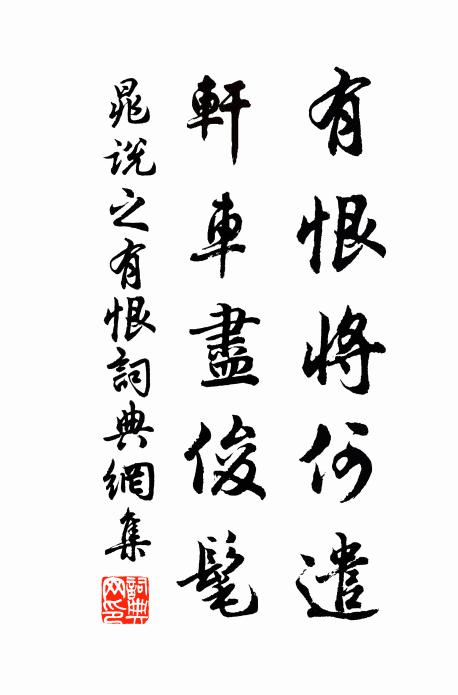 有恨將何遣
軒車盡俊髦
晁說之有恨詞典網集
詞典網印